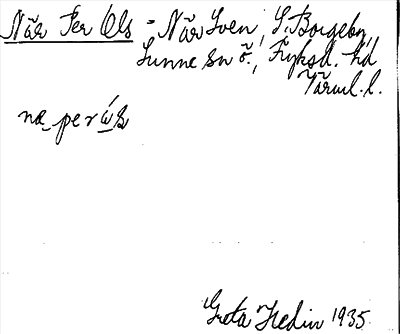 När Per Ols - När Sven, S. Borgeby,
Sunne sn ö., Fryksd. hd
Värml. l.
næ per ús
Greta Hedin 1935.